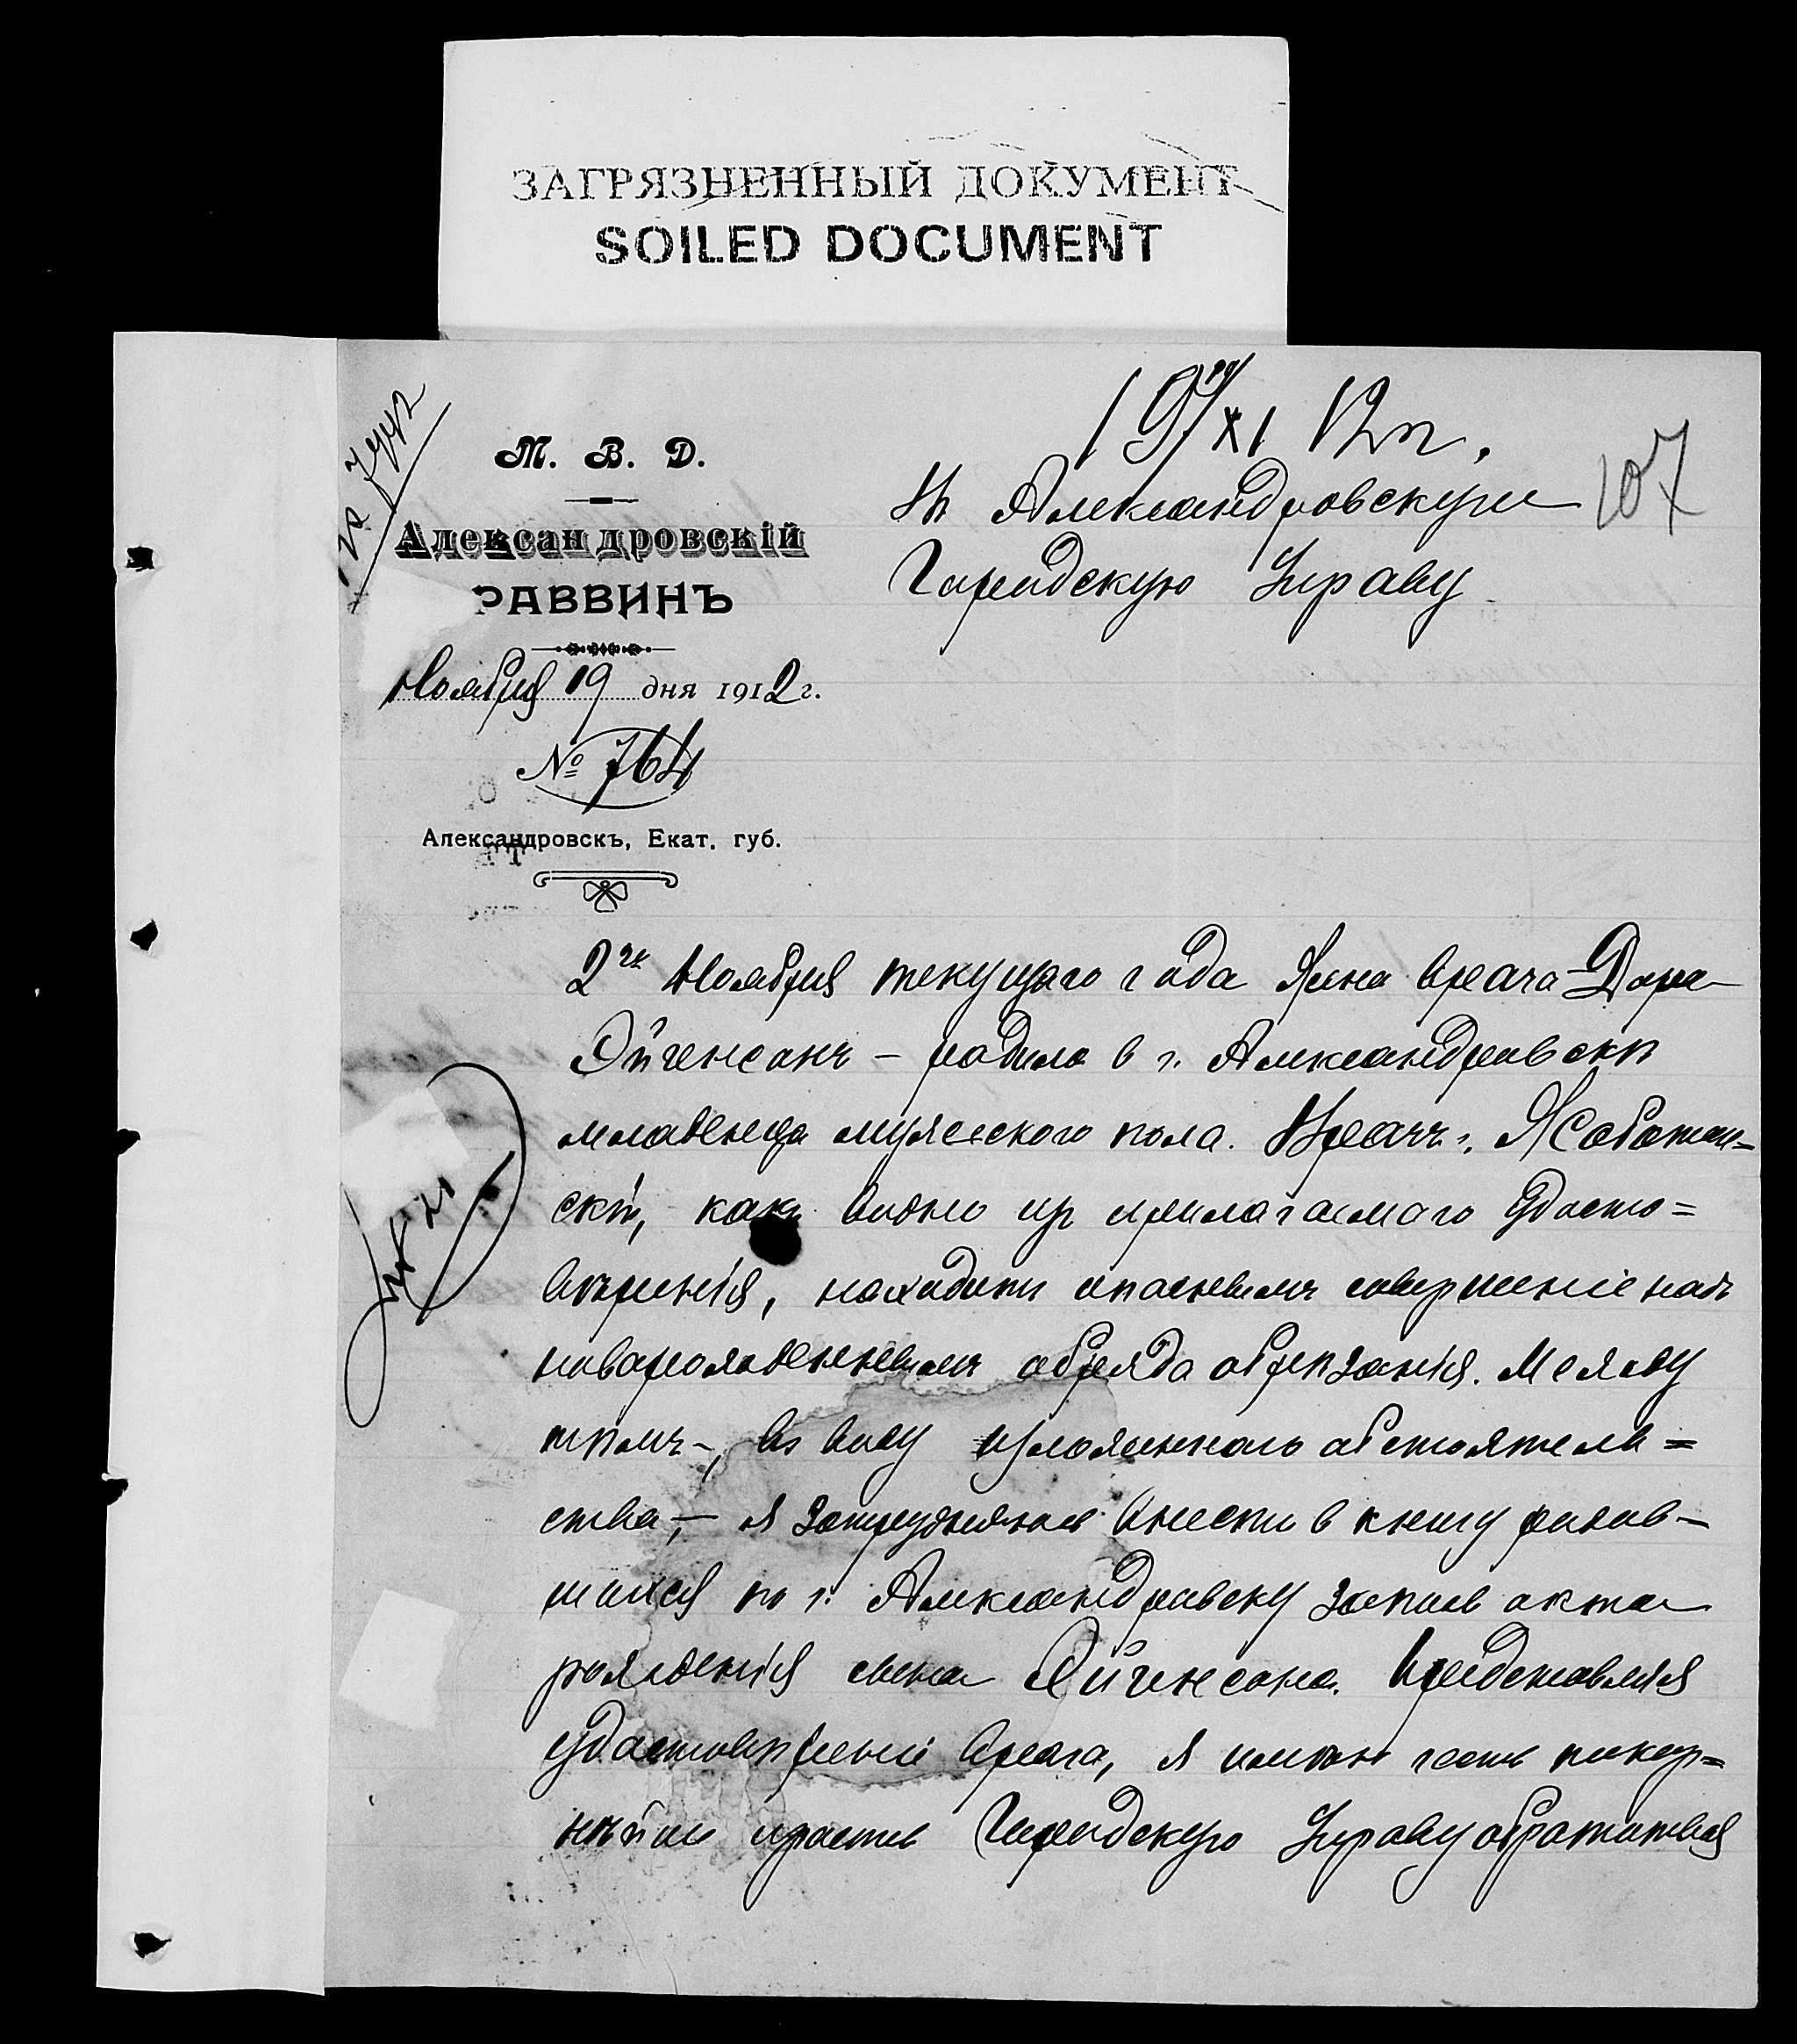 ЗАГРЯЗНЕННЫЙ ДОКУМЕНТ
SOILED DOCUMENT
19/XI 12 г.
107
М. В. Д.
Александровскій
РАВВИНЪ
Ноября 19 дня 1912 г.
№ 764
Александровскъ, Екат. губ.
Въ Александровскую
Городскую Управу
2го Ноября текущаго года жена врача Дора
Эйгенсонъ – родила в г. Александровскѣ
младенца мужескаго пола. Врачъ г. Жаботин=
скій, какъ видно из прилагаемаго удосто=
вѣренія, находитъ опаснымъ совершеніе надъ
новорожденнымъ обряда обрѣзанія. Между
тѣмъ, въ виду изложеннаго обстоятель=
ства, – я затрудняюсь внести в книгу родив–
шихся по г. Александровску запись акта
рожденія сына Эйгенсона. Представляя
удостовѣреніе врача, я имѣю честь покор=
нѣйше просить Городскую Управу обратиться